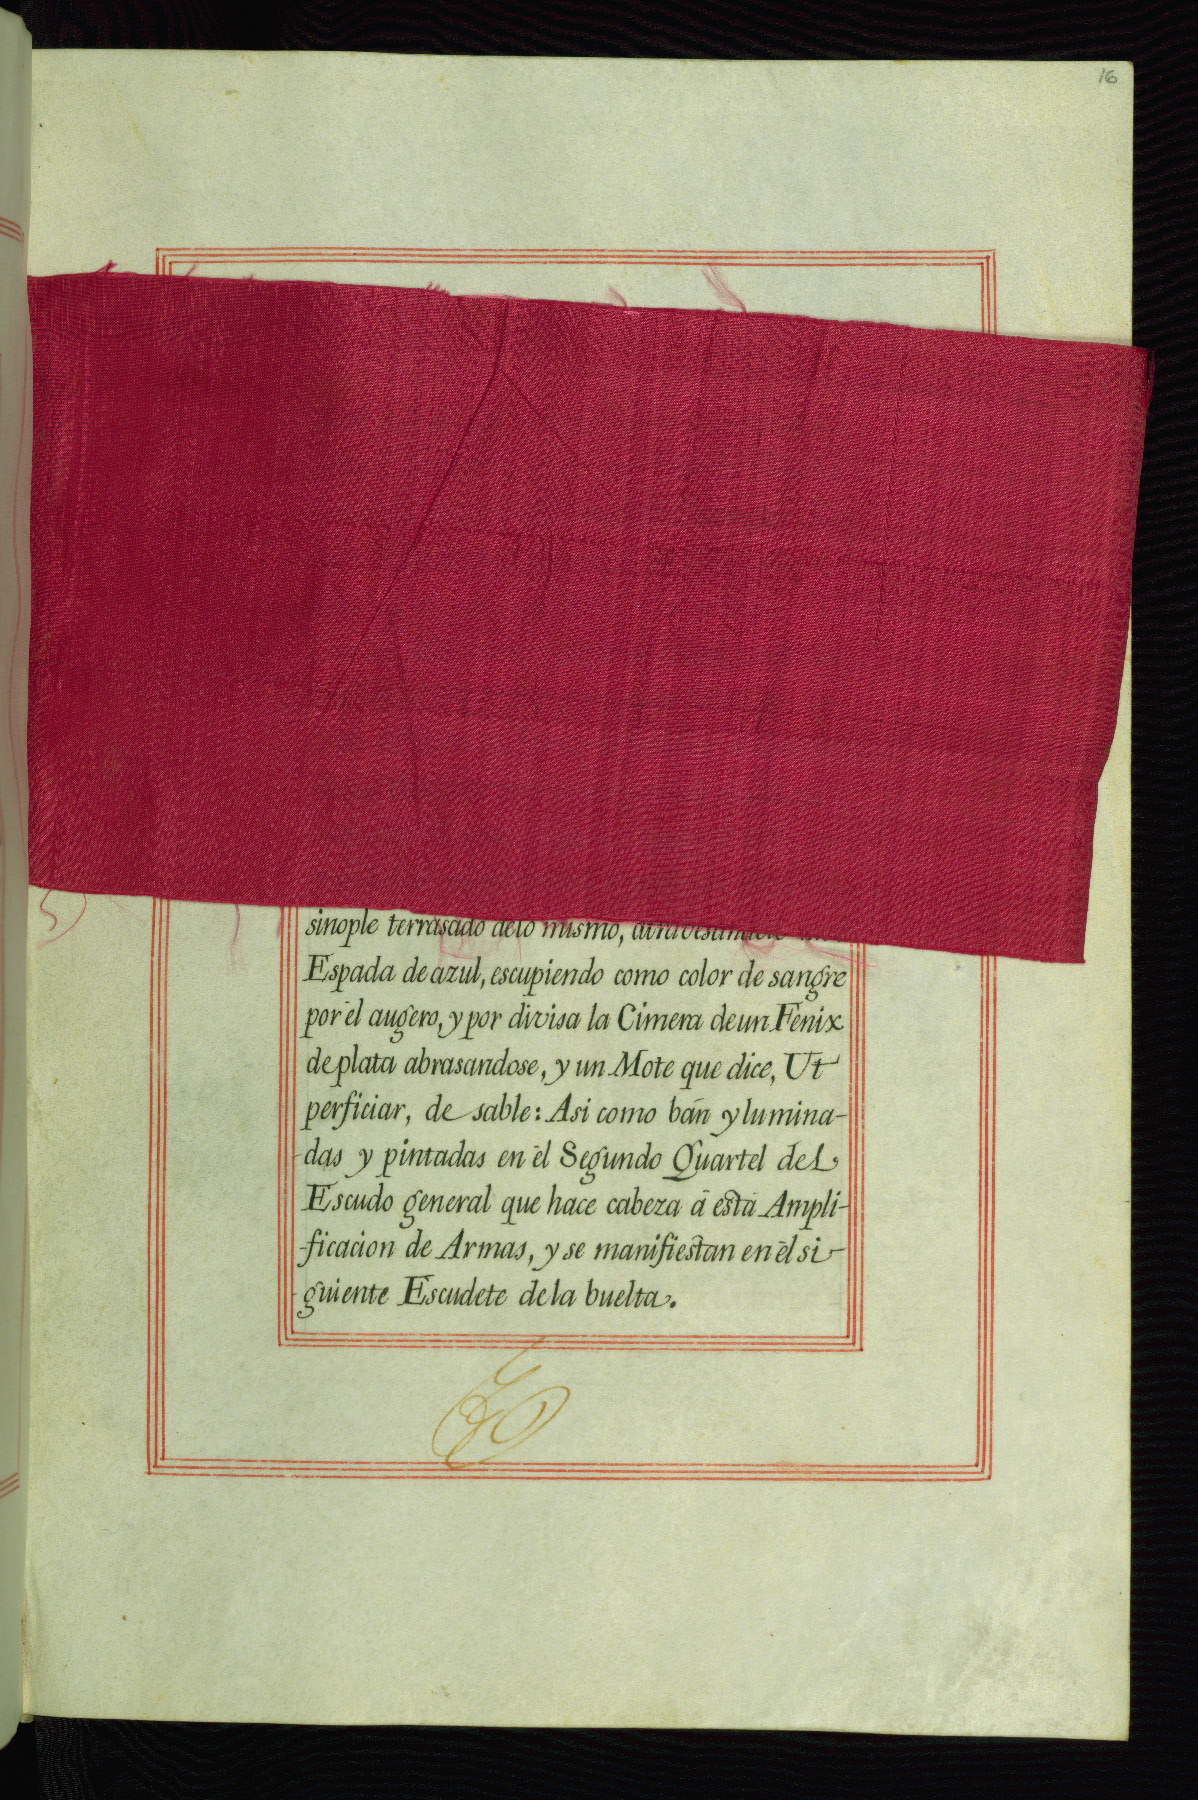 16
sinople terrasado delo mismo, atravesandole
Espada de azul, escupiendo como color de sangre
por él augero, y por divisa la Cimera de un Fenix
de plata abrasandose, y un Mote que dice, Ut
perficiar, de sable: Asi como bán ylumina-
das y pintadas en él Segundo Quartel del
Escudo general que hace cabeza á está Ampli-
ficacion de Armas, y se manifiestan en él si-
guiente Escudete dela buelta.